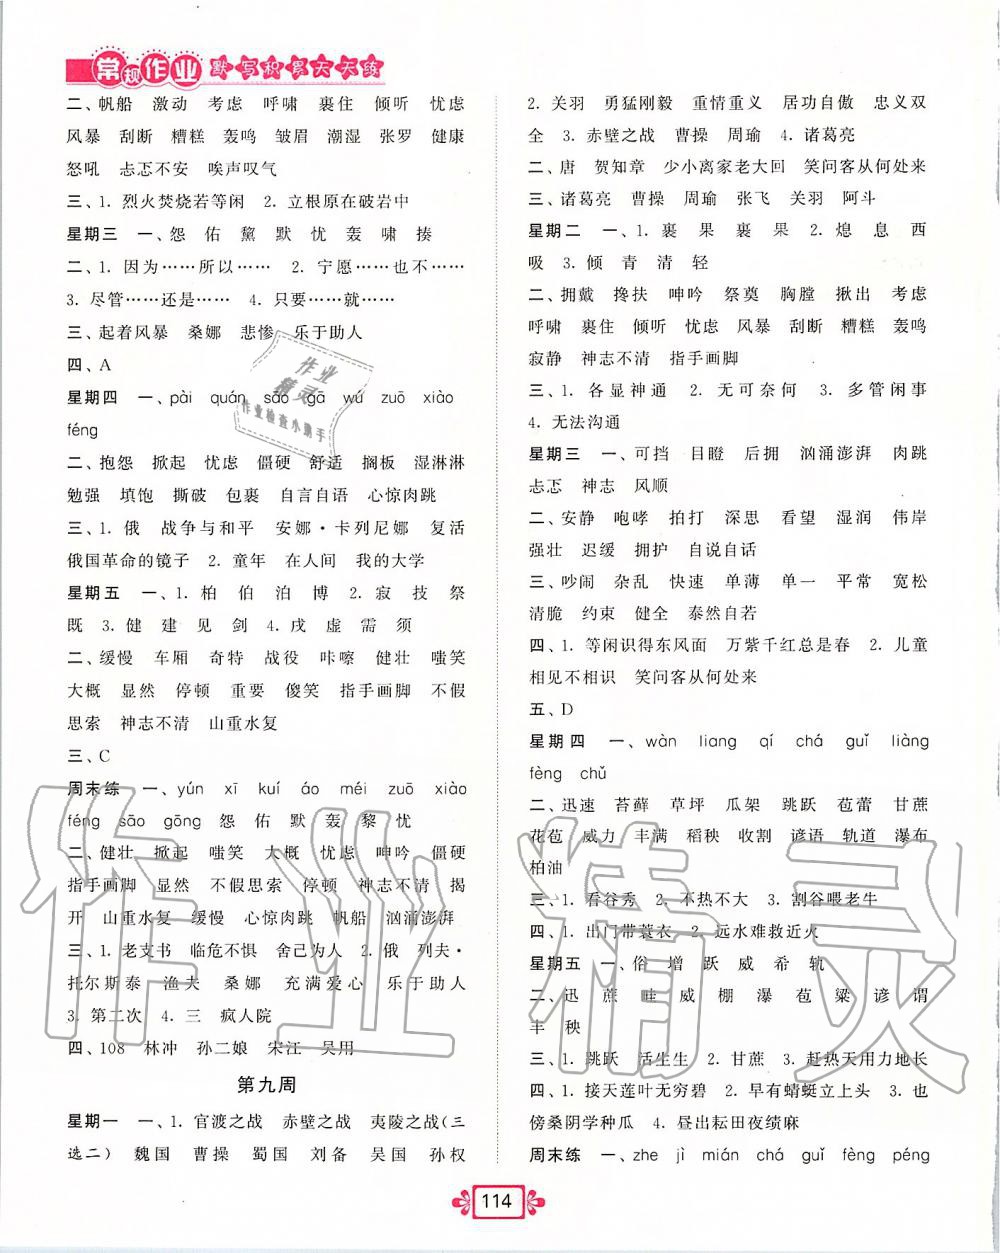 常规作业 默写积累天天练
二、帆船 激动 考虑 呼啸 裹住 倾听 忧虑
风暴 刮断 糟糕 轰鸣 皱眉 潮湿 张罗 健康
怒吼 忐忑不安 唉声叹气
三、1. 烈火焚烧若等闲 2. 立根原在破岩中
星期三 一、怨 佑 黛 默 忧 轰 啸 揍
二、1. 因为……所以…… 2. 宁愿……也不……
3. 尽管……还是…… 4. 只要……就……
三、起着风暴 桑娜 悲惨 乐于助人
四、A
星期四 一、pài quán sāo gā wú zuō xiào
féng
二、抱怨 掀起 忧虑 僵硬 舒适 搁板 湿淋淋
勉强 填饱 撕破 包裹 自言自语 心惊肉跳
三、1. 俄 战争与和平 安娜·卡列尼娜 复活
俄国革命的镜子 2. 童年 在人间 我的大学
星期五 一、1. 柏 伯 泊 博 2. 寂 技 祭
既 3. 健 建 见 剑 4. 戌 虚 需 须
二、缓慢 车厢 奇特 战役 咔嚓 健壮 嗤笑
大概 显然 停顿 重要 傻笑 指手画脚 不假
思索 神志不清 山重水复
三、C
周末练 一、yún xī kuí áo méi zuō xiào
féng sāo gōng 怨 佑 默 轰 黎 忧
二、健壮 掀起 嗤笑 大概 忧虑 呻吟 僵硬
指手画脚 显然 不假思索 停顿 神志不清 揭
开 山重水复 缓慢 心惊肉跳 帆船 汹涌澎湃
三、1. 老支书 临危不惧 舍己为人 2. 俄 列夫·
托尔斯泰 渔夫 桑娜 充满爱心 乐于助人
3. 第二次 4. 三 疯人院
四、108 林冲 孙二娘 宋江 吴用
第九周
星期一 一、1. 官渡之战 赤壁之战 夷陵之战(三
选二) 魏国 曹操 蜀国 刘备 吴国 孙权
2. 关羽 勇猛刚毅 重情重义 居功自傲 忠义双
全 3. 赤壁之战 曹操 周瑜 4. 诸葛亮
二、唐 贺知章 少小离家老大回 笑问客从何处来
三、诸葛亮 曹操 周瑜 张飞 关羽 阿斗
星期二 一、1. 裹 果 裹 果 2. 熄 息 西
吸 3. 倾 青 清 轻
二、拥戴 搀扶 呻吟 祭奠 胸膛 揪出 考虑
呼啸 裹住 倾听 忧虑 风暴 刮断 糟糕 轰鸣
寂静 神志不清 指手画脚
三、1. 各显神通 2. 无可奈何 3. 多管闲事
4. 无法沟通
星期三 一、可挡 目瞪 后拥 汹涌澎湃 肉跳
忐忑 神志 风顺
二、安静 咆哮 拍打 深思 看望 湿润 伟岸
强壮 迟缓 拥护 自说自话
三、吵闹 杂乱 快速 单薄 单一 平常 宽松
清脆 约束 健全 泰然自若
四、1. 等闲识得东风面 万紫千红总是春 2. 儿童
相见不相识 笑问客从何处来
五、D
星期四 一、wàn liang qí chá guǐ liàng
fèng chǔ
二、迅速 苔藓 草坪 瓜架 跳跃 苞蕾 甘蔗
花苞 威力 丰满 稻秧 收割 谚语 轨道 瀑布
柏油
三、1. 看谷秀 2. 不热不大 3. 割谷喂老牛
四、1. 出门带蓑衣 2. 远水难救近火
星期五 一、俗 增 跃 威 希 轨
二、迅 蔗 哇 威 棚 瀑 苞 粱 谚 谓
丰 秧
三、1. 跳跃 活生生 2. 甘蔗 3. 赶热天用力地长
四、1. 接天莲叶无穷碧 2. 早有蜻蜓立上头 3. 也
傍桑阴学种瓜 4. 昼出耘田夜绩麻
周末练 一、zhe jì mián chá guǐ fèng péng
114
作业精灵
作业检查小帮手